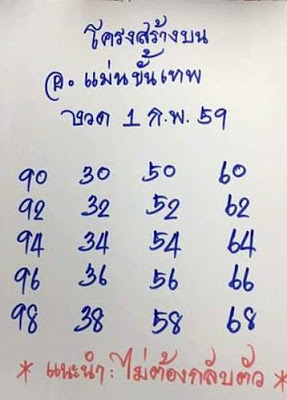 โครงสร้างบน
อ. แม่นขั้นเทพ
งวด 1 ก.พ. 59
90 30 50 60
92 32 52 62
94 34 54 64
96 36 56 66
98 38 58 68
* แนะนำ : ไม่ต้องกลับตัว *